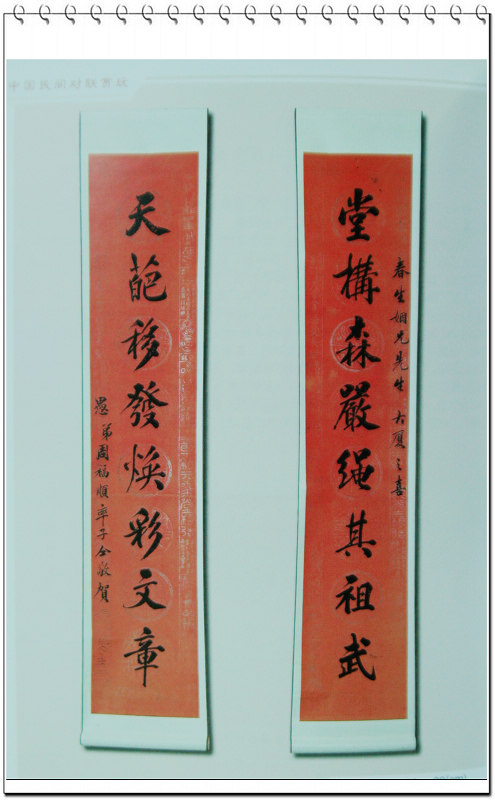 中国民间对联赏玩
春生姻兄先生 大厦之喜
堂構森嚴绳其祖武
天葩移發焕彩文章
愚弟周福順率子仝敬賀